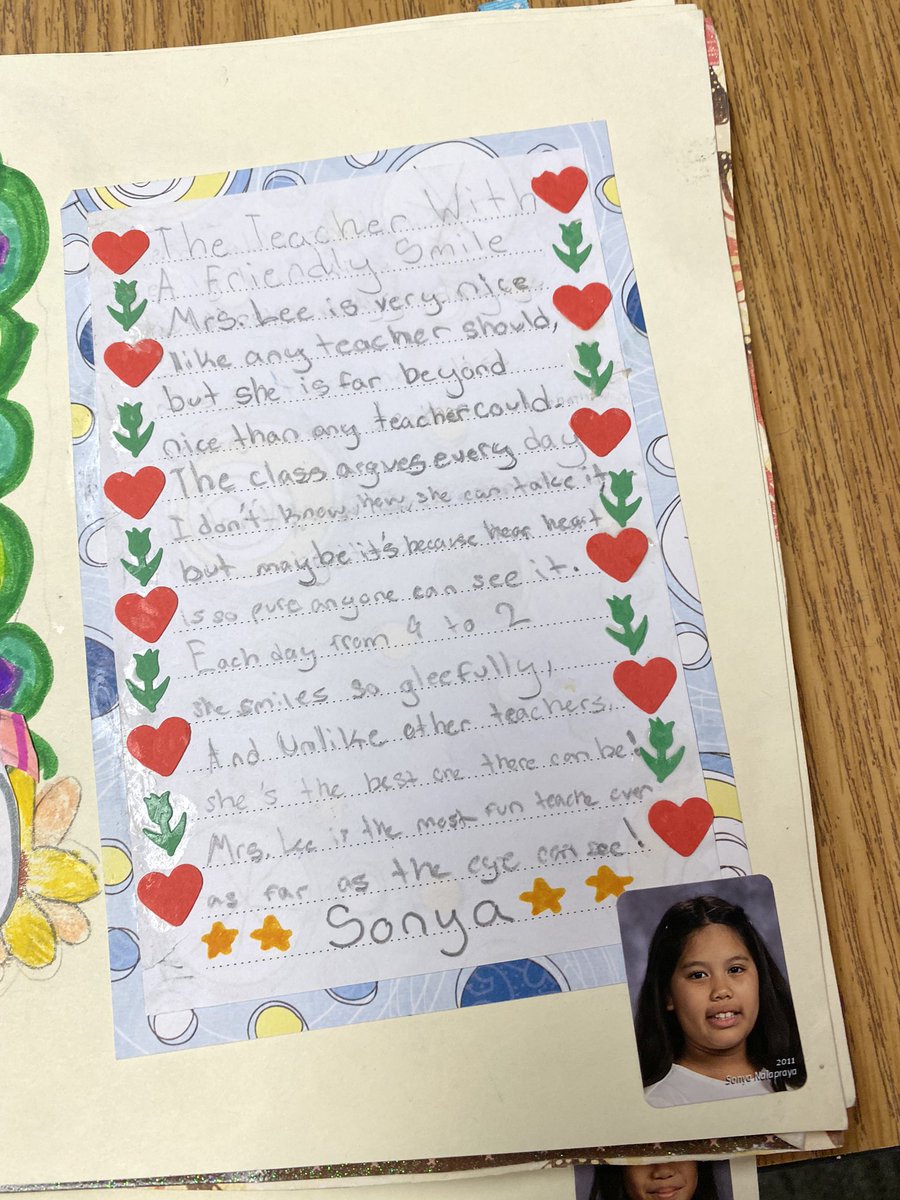 The Teacher With
A Friendly Smile
Mrs. Lee is very nice
like any teacher should,
but she is far beyond
nice than any teacher could.
The class argues every day
I don't know how she can take it
but maybe it's because hear heart
is so pure anyone can see it.
Each day from 9 to 2
she smiles so gleefully,
And Unlike other teachers,
she's the best one there can be!
Mrs. Lee is the most fun teache ever
as far as the eye can see!
Sonya
2011
Sonya Nalapraya